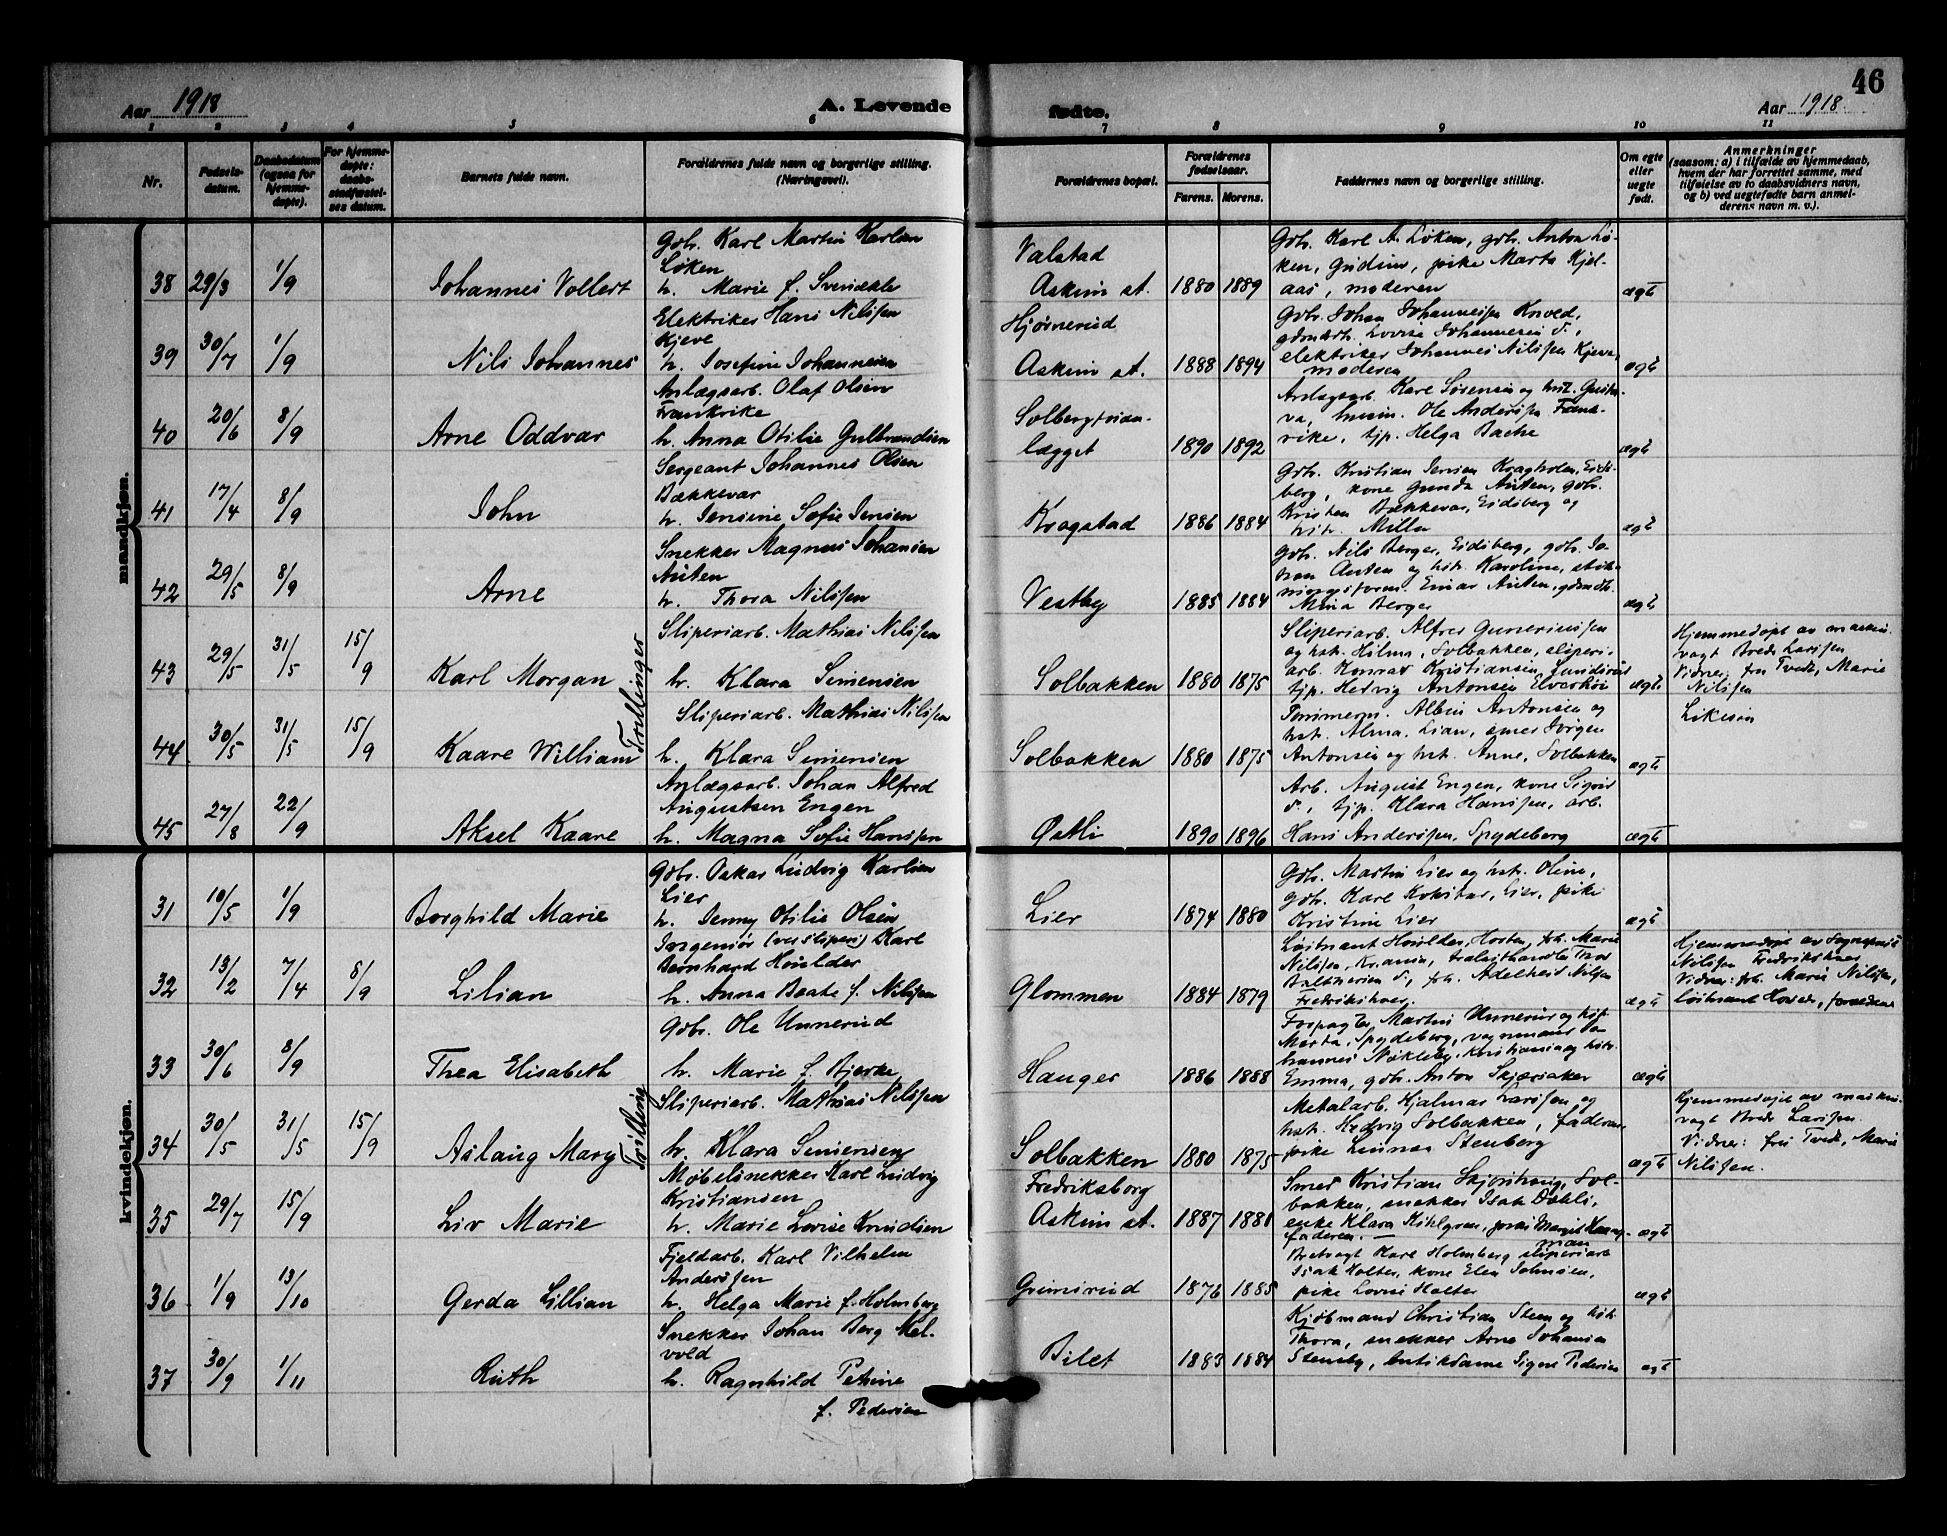 46
Aar 1918
A. Levende
fødte.
Aar 1918
1 2 3 4 5 6 7 8 9 10 11
Nr.
Fødsels-
datum.
Daabsdatum
(ogsaa for
hjemme-
døpte).
For hjemme-
døpte:
daabs-
stadfæstel-
ses datum.
Barnets fulde navn.
Forældrenes fulde navn og borgerlige stilling.
(Næringsvei).
Forældrenes bopæl.
Forældrenes
fødselsaar.
Farens. Morens.
Faddernes navn og borgerlige stilling.
Om egte
eller
uegte
født.
Anmerkninger
(saasom: a) i tilfælde av hjemmedaab,
hvem der har forrettet samme, med
tilføielse av to daabsvidners navn,
og b) ved uegtefødte barn anmel-
derens navn m. v.).
mandkjøn.
38 29/3 1/9
Johannes Vollert
Gbr. Karl Martin Karlsen
Løken
h. Marie f.
Valstad
Askim st.
1880 1889
Gbr. Karl A. Løken, gbr. Anton Lø-
ken, pike Marta Kjel-
aas, moderen
ægt
39 30/7 1/9
Nils Johannes
Elektriker Hans Nilssen
Kjeve
h. Josefine Johannesen
Hjørnerud
Askim st.
1888 1894
Gbr. Johan Johannessen
Lovise Johannesen
elektriker Johannes Nilssen Kjeve,
moderen
ægt
40 20/6 8/9
Arne Oddvar
Anlægsarb. Olaf Olsen
Frankrike
h. Anna Otilie Gulbrandsen
lægget
1890 1892
Anlægsarb. Karl Sørensen og hst. Gusta-
va, husm. Ole Anderssen Frank-
rike, tjp. Helga Bache
ægt
41 17/4 8/9
John
Sergeant Johannes Olsen
Bækkevar
h. Jensine Sofie Jensen
Kragstad
1886 1884
Gbr. Kristian Jensen Kragholen, Eids-
berg, kone Gunda Auten, gbr.
Kristen Bækkevar, Eidsberg og
hst. Milla
ægt
42 29/5 8/9
Arne
Snekker Magnus Johansen
Auten
h. Thora Nilssen
Vestby
1885 1884
Gbr. Nils Berger, Eidsberg, gbr. Jo-
han Auten og hst. Karoline,
Einar Auten,
Mina Berger
ægt
43 29/5 31/5 15/9
Karl Morgan
Trillinger
Sliperiarb. Mathias Nilssen
h. Klara Simensen
Solbakken
1880 1875
Sliperiarb. Alfred Gunerinssen
og hst. Hilma, Solbakken, sliperi-
arb. Konrad Kristiansen,
tjp. Hedvig Antonsen
ægt
Hjemmedøpt av maskin-
vagt Larssen
Vidner, fru Tvedt, Marie
Nilssen
44 30/5 31/5 15/9
Kaare William
Sliperiarb. Mathias Nilssen
h. Klara Simensen
Solbakken
1880 1875
Tømmerm. Albin Antonsen og
hst. Alma, Lian, smed Jørgen
Antonsen og hst. Anne, Solbakken
ægt
Likesaa
45 27/8 22/9
Aksel Kaare
Anlægsarb. Johan Alfred
Augustsen Engen
h. Magna Sofie Hanssen
Østli
1890 1896
Arb. August Engen, kone Sigrid
d., tjp. Klara Hanssen, arb.
Hans Anderssen, Spydeberg
ægt
kvindekjøn.
31 10/5 1/9
Borghild Marie
Gbr. Oskar Ludvig Karlsen
Lier
h. Jenny Otilie Olsen
Lier
1874 1880
Gbr. Martin Lier og hst. Oline,
gbr. Karl Kokstad, Lier, pike
Kristine Lier
ægt
32 13/2 7/4 8/9
Lilian
Ingeniør (ved sliperi) Karl
Bernhard Houlder
h. Anna Beate f. Nilssen
Glommen
1884 1879
Løitnant Houlder, Horten, frk. Marie
Nilssen, Krania,
frk. Adelheid Nilssen
ægt
Hjemmedøpt av Sogneprest
Nilssen
Vidner: frk. Marie Nilssen,
løitnant
33 30/6 8/9
Thea Elisabeth
Gbr. Ole Unnerud
h. Marie f. Bjerke
Hauger
1886 1888
Forpagter Martin Unnerud og hst.
Marta, Spydeberg, vognmand Jo-
hannes Nøkleby, Kristiania og hst.
Emma, gbr. Anton Skjæraker
ægt
34 30/5 31/5 15/9
Aslaug Mary
Trilling
Sliperiarb. Mathias Nilssen
h. Klara Simensen
Solbakken
1880 1875
Metalarb. Hjalmar Larssen og
hst. Hedvig Solbakken, faderen
pike Linnea Stenberg
ægt
Hjemmedøpt av maskin-
vagt Larssen.
Vidner: fru Tvedt, Marie
Nilssen.
35 29/7 15/9
Liv Marie
Møbelsnekker Karl Ludvig
Kristiansen
h. Marie Lovise Knudsen
Fredriksborg
Askim st.
1887 1881
Smed Kristian Skjørshaug, Sol-
bakken, snekker Isak Dahli,
enke Klara Kihlgren,
faderen.
ægt
36 1/9 13/10
Gerda Lillian
Fjeldarb. Karl Vilhelm
Anderssen
h. Helga Marie f. Holmberg
Grimsrud
1876 1885
Karl Holmberg sliperiarb.
Isak Holter, kone Elen Johnsen,
pike Lovise Holter
ægt
37 30/9 1/11
Ruth
Snekker Johan Berg Mel-
vold
h. Ragnhild Petrine
f. Pedersen
Bilet
1883 1884
Kjøbmand Christian Steen og hst.
Thora, snekker Arne Johansen
Stensby, butikdame Signe Pedersen
ægt